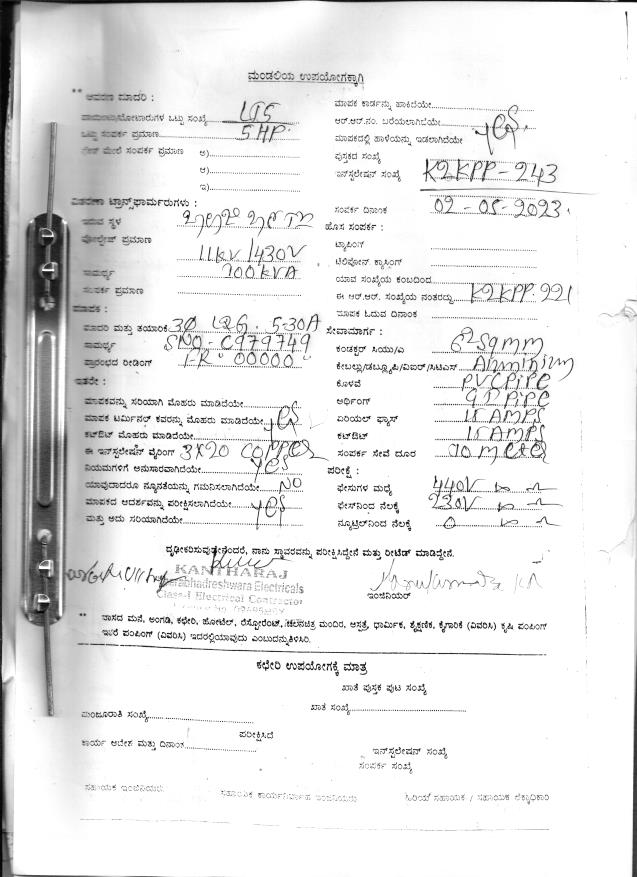 ಮಂಡಲಿಯ ಉಪಯೋಗಕ್ಕಾಗಿ
** ಆವರಣ ಮಾದರಿ : LT5
ಒಟ್ಟು ಸಂಪರ್ಕ ಪ್ರಮಾಣ 5HP.
ಮೇಲೆ ಸಂಪರ್ಕ ಪ್ರಮಾಣ ಅ)
ಆ)
ಇ)
ವಿತರಣಾ ಟ್ರಾನ್ಸ್‌ಫಾರ್ಮರುಗಳು :
ಇರುವ ಸ್ಥಳ
ವೋಲ್ಟೇಜ್ ಪ್ರಮಾಣ 11kV/430V
ಸಾಮರ್ಥ್ಯ 100kVA
ಸಂಪರ್ಕ ಪ್ರಮಾಣ
ಮಾಪಕ :
ಮಾದರಿ ಮತ್ತು ತಯಾರಿಕೆ 3Ø L&G. 5-30A
ಸಾಮರ್ಥ್ಯ SNO-C979749
ಪ್ರಾರಂಭದ ರೀಡಿಂಗ್ I-R- 00000
ಇತರೇ :
ಮಾಪಕವನ್ನು ಸರಿಯಾಗಿ ಮೊಹರು ಮಾಡಿದೆಯೇ
ಮಾಪಕ ಟರ್ಮಿನಲ್ ಕವರನ್ನು ಮೊಹರು ಮಾಡಿದೆಯೇ yes
ಕಟ್‌ಔಟ್ ಮೊಹರು ಮಾಡಿದೆಯೇ
ಈ ಇನ್‌ಸ್ಟಲೇಷನ್ ವೈರಿಂಗ್ 3X20 COPPER
ನಿಯಮಗಳಿಗೆ ಅನುಸಾರವಾಗಿದೆಯೇ yes
ಯಾವುದಾದರೂ ನ್ಯೂನತೆಯನ್ನು ಗಮನಿಸಲಾಗಿದೆಯೇ NO
ಮಾಪಕದ ಆದರ್ಶವನ್ನು ಪರೀಕ್ಷಿಸಲಾಗಿದೆಯೇ yes
ಮತ್ತು ಅದು ಸರಿಯಾಗಿದೆಯೇ
ಮಾಪಕ ಕಾರ್ಡನ್ನು ಹಾಕಿದೆಯೇ
ಆರ್.ಆರ್.ನಂ. ಬರೆಯಲಾಗಿದೆಯೇ
ಮಾಪಕದಲ್ಲಿ ಹಾಳೆಯನ್ನು ಇಡಲಾಗಿದೆಯೇ yes
ಪುಸ್ತಕದ ಸಂಖ್ಯೆ
ಇನ್‌ಸ್ಟಲೇಷನ್ ಸಂಖ್ಯೆ K2KPP-243
ಸಂಪರ್ಕ ದಿನಾಂಕ 02-05-2023.
ಹೊಸ ಸಂಪರ್ಕ :
ಟ್ಯಾಪಿಂಗ್
ಟೆಲಿಫೋನ್ ಕ್ರಾಸಿಂಗ್
ಯಾವ ಸಂಖ್ಯೆಯ ಕಂಬದಿಂದ
ಈ ಆರ್.ಆರ್. ಸಂಖ್ಯೆಯ ನಂತರದ್ದು K2KPP-221
ಮಾಪಕ ಓದುವ ದಿನಾಂಕ
ಸೇವಾಮಾರ್ಗ :
ಕಂಡಕ್ಟರ್ ಸಿಯು/ಎ 6²Sqmm
ಕೇಬಲ್ಲು/ಡಬ್ಲ್ಯೂಪಿ/ವಿಐರ್/ಸಿಟಿಎಸ್ Aluminium
ಕೊಳವೆ PVC PIPE
ಅರ್ಥಿಂಗ್ GI PIPE
ಏರಿಯಲ್ ಫ್ಯೂಸ್ 15 AMPS
ಕಟ್‌ಔಟ್ 15 AMPS
ಸಂಪರ್ಕ ಸೇವೆ ದೂರ
ಪರೀಕ್ಷೆ :
ಫೇಸುಗಳ ಮಧ್ಯೆ 440V
ಫೇಸ್‌ನಿಂದ ನೆಲಕ್ಕೆ 230V
ನ್ಯೂಟ್ರಲ್‌ನಿಂದ ನೆಲಕ್ಕೆ 0
ದೃಢೀಕರಿಸುವುದೇನೆಂದರೆ, ನಾನು ಸ್ಥಾವರವನ್ನು ಪರೀಕ್ಷಿಸಿದ್ದೇನೆ ಮತ್ತು ರೀಟೆಡ್ ಮಾಡಿದ್ದೇನೆ.
KANTHARAJ
Veerabhadreshwara Electricals
Class-I Electrical Contractor
ಇಂಜಿನಿಯರ್
** ವಾಸದ ಮನೆ, ಅಂಗಡಿ, ಕಛೇರಿ, ಹೋಟೆಲ್, ರೆಸ್ಟೋರೆಂಟ್, ಚಲನಚಿತ್ರ ಮಂದಿರ, ಆಸ್ಪತ್ರೆ, ಧಾರ್ಮಿಕ, ಶೈಕ್ಷಣಿಕ, ಕೈಗಾರಿಕೆ (ವಿವರಿಸಿ) ಕೃಷಿ ಪಂಪಿಂಗ್
ಇತರೆ ಪಂಪಿಂಗ್ (ವಿವರಿಸಿ) ಇದರಲ್ಲಿಯಾವುದು ಎಂಬುದನ್ನು ತಿಳಿಸಿರಿ.
ಕಛೇರಿ ಉಪಯೋಗಕ್ಕೆ ಮಾತ್ರ
ಖಾತೆ ಪುಸ್ತಕ ಪುಟ ಸಂಖ್ಯೆ
ಮಂಜೂರಾತಿ ಸಂಖ್ಯೆ
ಖಾತೆ ಸಂಖ್ಯೆ
ಪರೀಕ್ಷಿಸಿದೆ
ಕಾರ್ಯ ಆದೇಶ ಮತ್ತು ದಿನಾಂಕ
ಇನ್‌ಸ್ಟಲೇಷನ್ ಸಂಖ್ಯೆ
ಸಂಪರ್ಕ ಸಂಖ್ಯೆ
ಸಹಾಯಕ ಇಂಜಿನಿಯರು
ಸಹಾಯಕ ಕಾರ್ಯನಿರ್ವಾಹಕ ಇಂಜಿನಿಯರು
ಹಿರಿಯ ಸಹಾಯಕ / ಸಹಾಯಕ ಲೆಕ್ಕಾಧಿಕಾರಿ